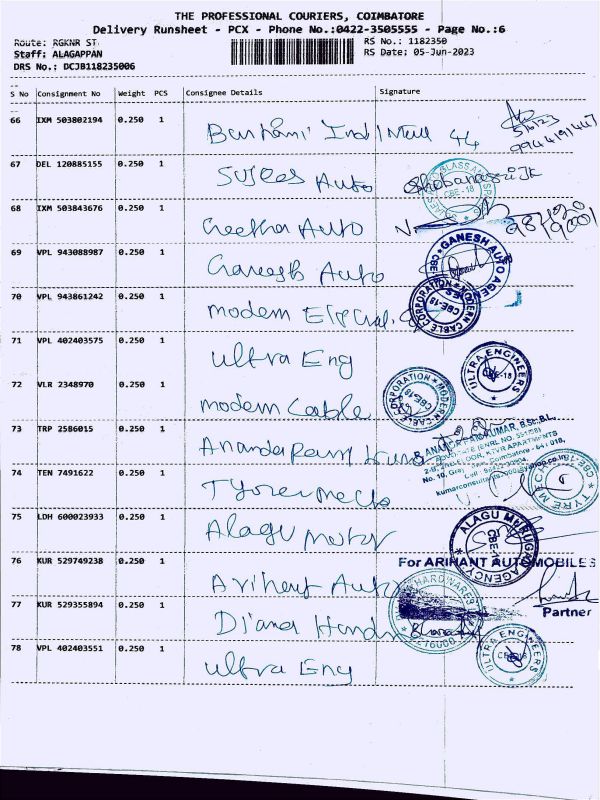 THE PROFESSIONAL COURIERS, COIMBATORE
Delivery Runsheet - PCX - Phone No.:0422-3505555 - Page No.:6
Route: RGKNR ST.
Staff: ALAGAPPAN
DRS No.: DCJB118235006
RS No.: 1182350
RS Date: 05-Jun-2023
S No Consignment No Weight PCS Consignee Details Signature
66 IXM 503802194 0.250 1
44
5/6/23
9944191447
67 DEL 120885155 0.250 1 Sujees Auto
CBE - 18
68 IXM 503843676 0.250 1 Geetha Auto
69 VPL 943088987 0.250 1 Ganesh Auto
GANESH AUTO AGENCIES
CBE-18
70 VPL 943861242 0.250 1 modern
MODERN CABLE CORPORATION
CBE-18
71 VPL 402403575 0.250 1 ultra Eng
ULTRA ENGINEERS
CBE-18
72 VLR 2348970 0.250 1 modern Cable
MODERN CABLE CORPORATION
CBE-18
73 TRP 2586015 0.250 1
B.Sc.,B.L.,
74 TEN 7491622 0.250 1
TYRE MECH
CBE-18
75 LDH 600023933 0.250 1 Alagu motor
ALAGU MURUGAN AGENCY
CBE-18
76 KUR 529749238 0.250 1 Arihant Auto
For ARIHANT AUTOMOBILES
Partner
77 KUR 529355894 0.250 1 Diana
HARDWARES
78 VPL 402403551 0.250 1 ultra Eng
ULTRA ENGINEERS
CBE-18